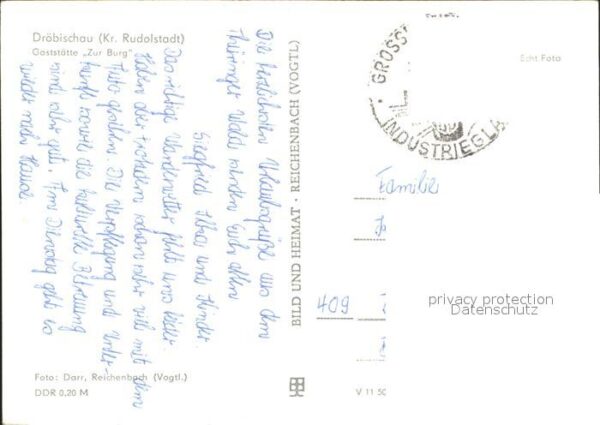 Dröbischau (Kr. Rudolstadt)
Gaststätte „Zur Burg"
Die herzlichsten Urlaubsgrüße aus dem
Thüringer Wald senden Euch allen
Siegfried, Ilka, und Kinder.
Das richtige Wanderwetter fehlt uns leider.
Haben aber trotzdem schon sehr viel mit dem
Auto gesehen. Die Verpflegung und Unter-
kunft sowie die kulturelle Betreuung
sind sehr gut. Am Dienstag geht es
wieder nach Hause.
Foto: Darr, Reichenbach (Vogtl.)
DDR 0,20 M
BILD UND HEIMAT · REICHENBACH (VOGTL)
V 11 50
Echt Foto
GROSS
INDUSTRIEGLA
Familie
409
privacy protection
Datenschutz